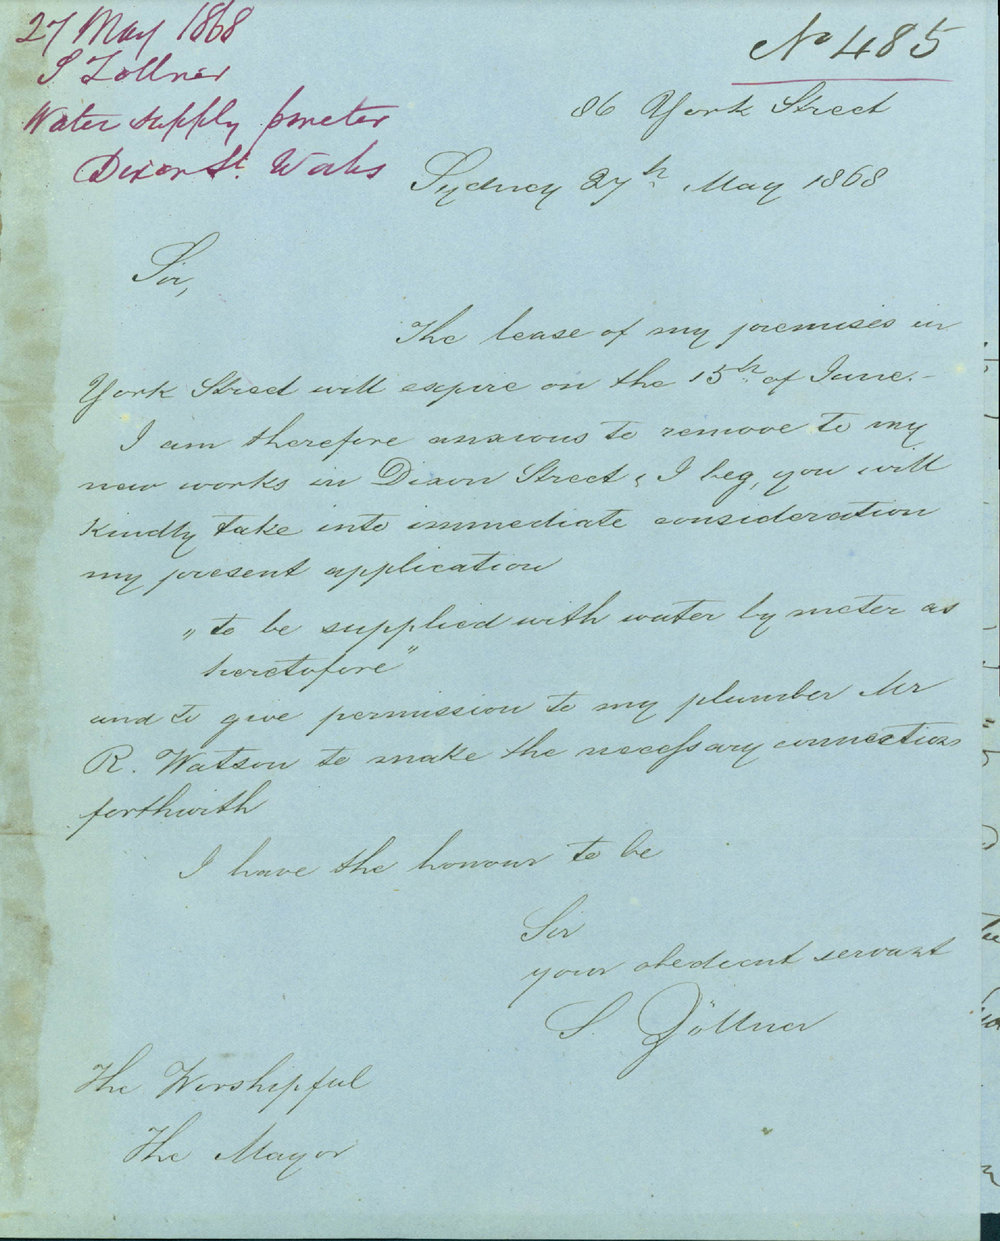 27 May 1868
S Zollner
Water supply p meter
Dixon St. Works
No 485
86 York Street
Sydney 27th May 1868
Sir,
The lease of my premises in
York Street will expire on the 15th of June.-
I am therefore anxious to remove to my
new works in Dixon Street & I beg, you will
kindly take into immediate consideration
my present application
„to be supplied with water by meter as
heretofore"
and to give permission to my plumber Mr
R. Watson to make the necessary connections
forthwith
I have the honour to be
Sir
your obedient servant
S. Zöllner
The Worshipful
The Mayor